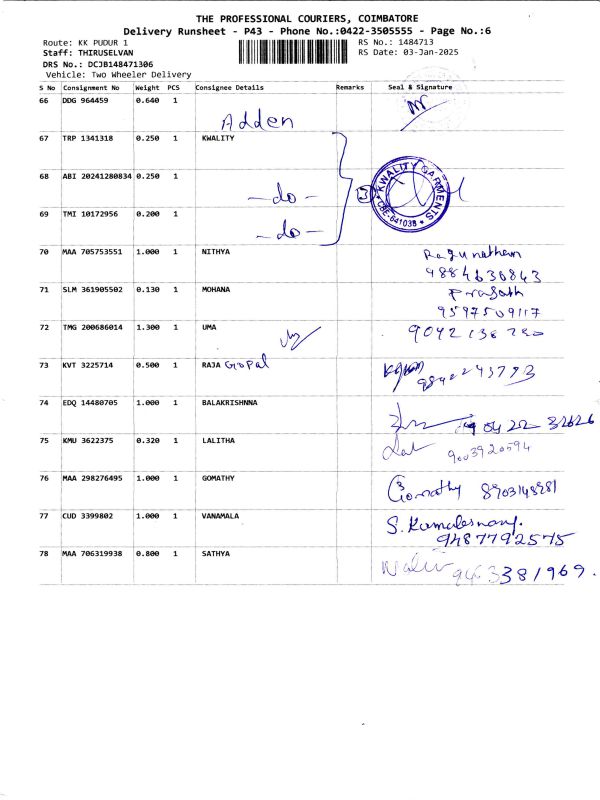 THE PROFESSIONAL COURIERS, COIMBATORE
Delivery Runsheet - P43 - Phone No.:0422-3505555 - Page No.:6
Route: KK PUDUR 1
RS No.: 1484713
Staff: THIRUSELVAN
RS Date: 03-Jan-2025
DRS No.: DCJB148471306
Vehicle: Two Wheeler Delivery
S No Consignment No Weight PCS Consignee Details Remarks Seal & Signature
66 DDG 964459 0.640 1
Adden
67 TRP 1341318 0.250 1 KWALITY
68 ABI 20241280834 0.250 1
-do-
3
KWALITY GARMENTS
CBE-641038
69 TMI 10172956 0.200 1
-do-
70 MAA 705753551 1.000 1 NITHYA
Ragunatham
9884636843
71 SLM 361905502 0.130 1 MOHANA
Prasath
9597509117
72 TMG 200686014 1.300 1 UMA
73 KVT 3225714 0.500 1 RAJA Gopal
74 EDQ 14480705 1.000 1 BALAKRISHNNA
75 KMU 3622375 0.320 1 LALITHA
Lal 9003920594
76 MAA 298276495 1.000 1 GOMATHY
Gomathy
77 CUD 3399802 1.000 1 VANAMALA
9487792575
78 MAA 706319938 0.800 1 SATHYA